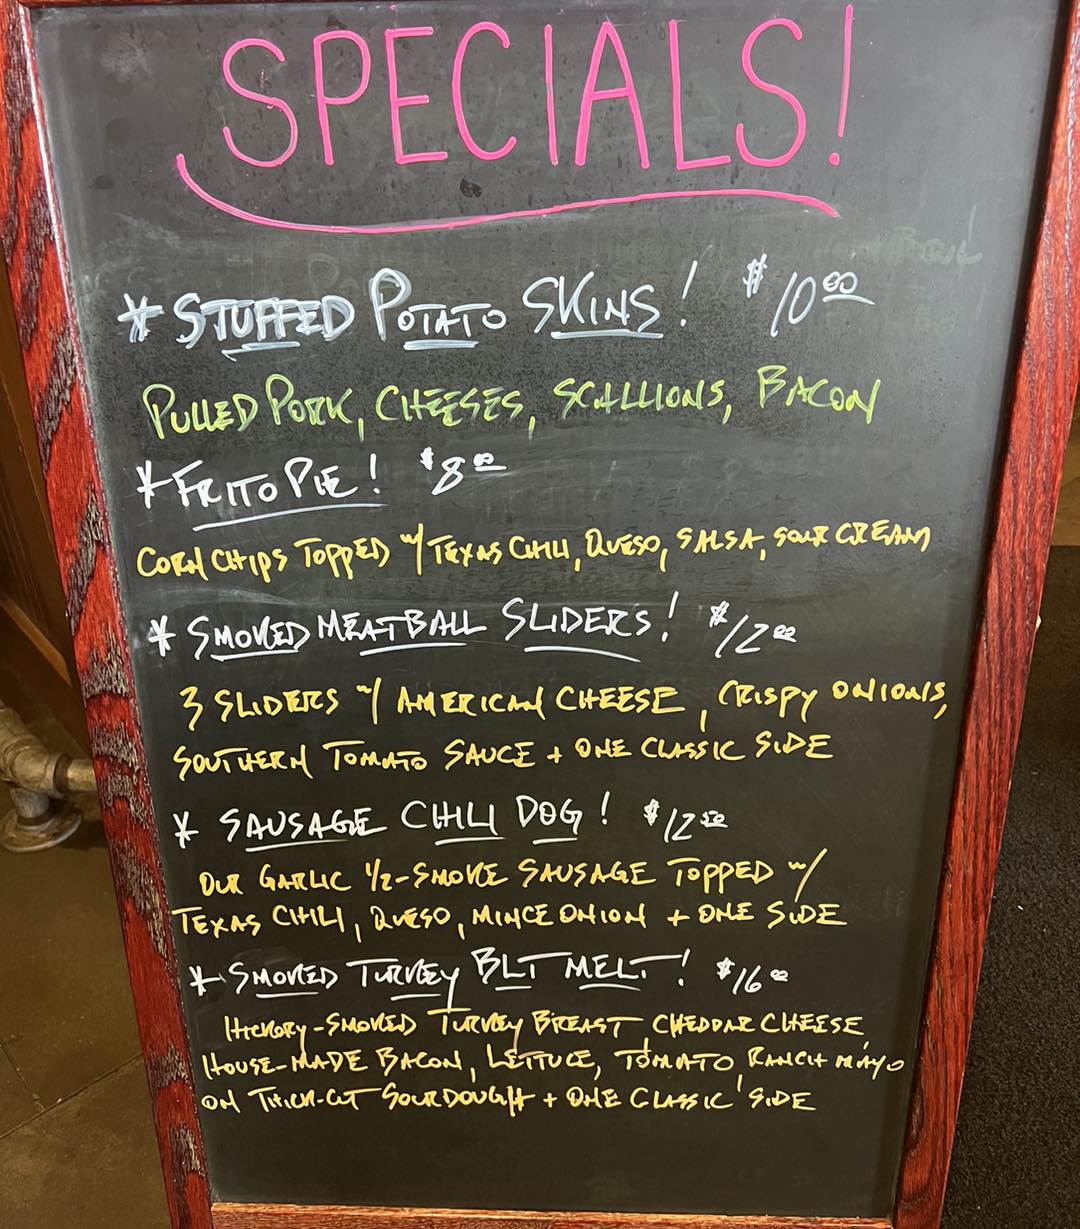 SPECIALS!
* STUFFED POTATO SKINS! $10.00
PULLED PORK, CHEESES, SCALLIONS, BACON
* FRITO PIE! $8.00
CORN CHIPS TOPPED w/ TEXAS CHILI, QUESO, SALSA, SOUR CREAM
* SMOKED MEATBALL SLIDERS! $12.00
3 SLIDERS w/ AMERICAN CHEESE, CRISPY ONIONS,
SOUTHERN TOMATO SAUCE + ONE CLASSIC SIDE
* SAUSAGE CHILI DOG! $12.50
OUR GARLIC 1/2-SMOKE SAUSAGE TOPPED w/
TEXAS CHILI, QUESO, MINCE ONION + ONE SIDE
* SMOKED TURKEY BLT MELT! $16.00
HICKORY-SMOKED TURKEY BREAST, CHEDDAR CHEESE,
HOUSE-MADE BACON, LETTUCE, TOMATO, RANCH MAYO
ON THICK-CUT SOURDOUGH + ONE CLASSIC SIDE